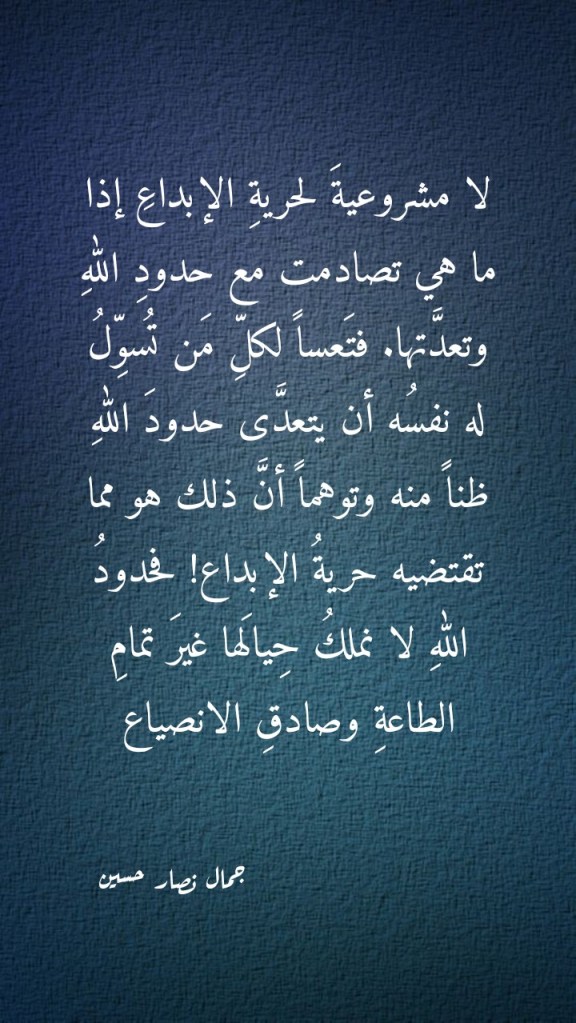 لا مشروعيةَ لحريةِ الإبداعِ إذا
ما هي تصادمت مع حدودِ اللهِ
وتعدَّتها. فتَعساً لكلِّ مَن تُسوِّلُ
له نفسُه أن يتعدَّى حدودَ اللهِ
ظناً منه وتوهماً أنَّ ذلك هو مما
تقتضيه حريةُ الإبداع! فحدودُ
اللهِ لا نملكُ حِيالَها غيرَ تمامِ
الطاعةِ وصادقِ الانصياع
جمال نصار حسين